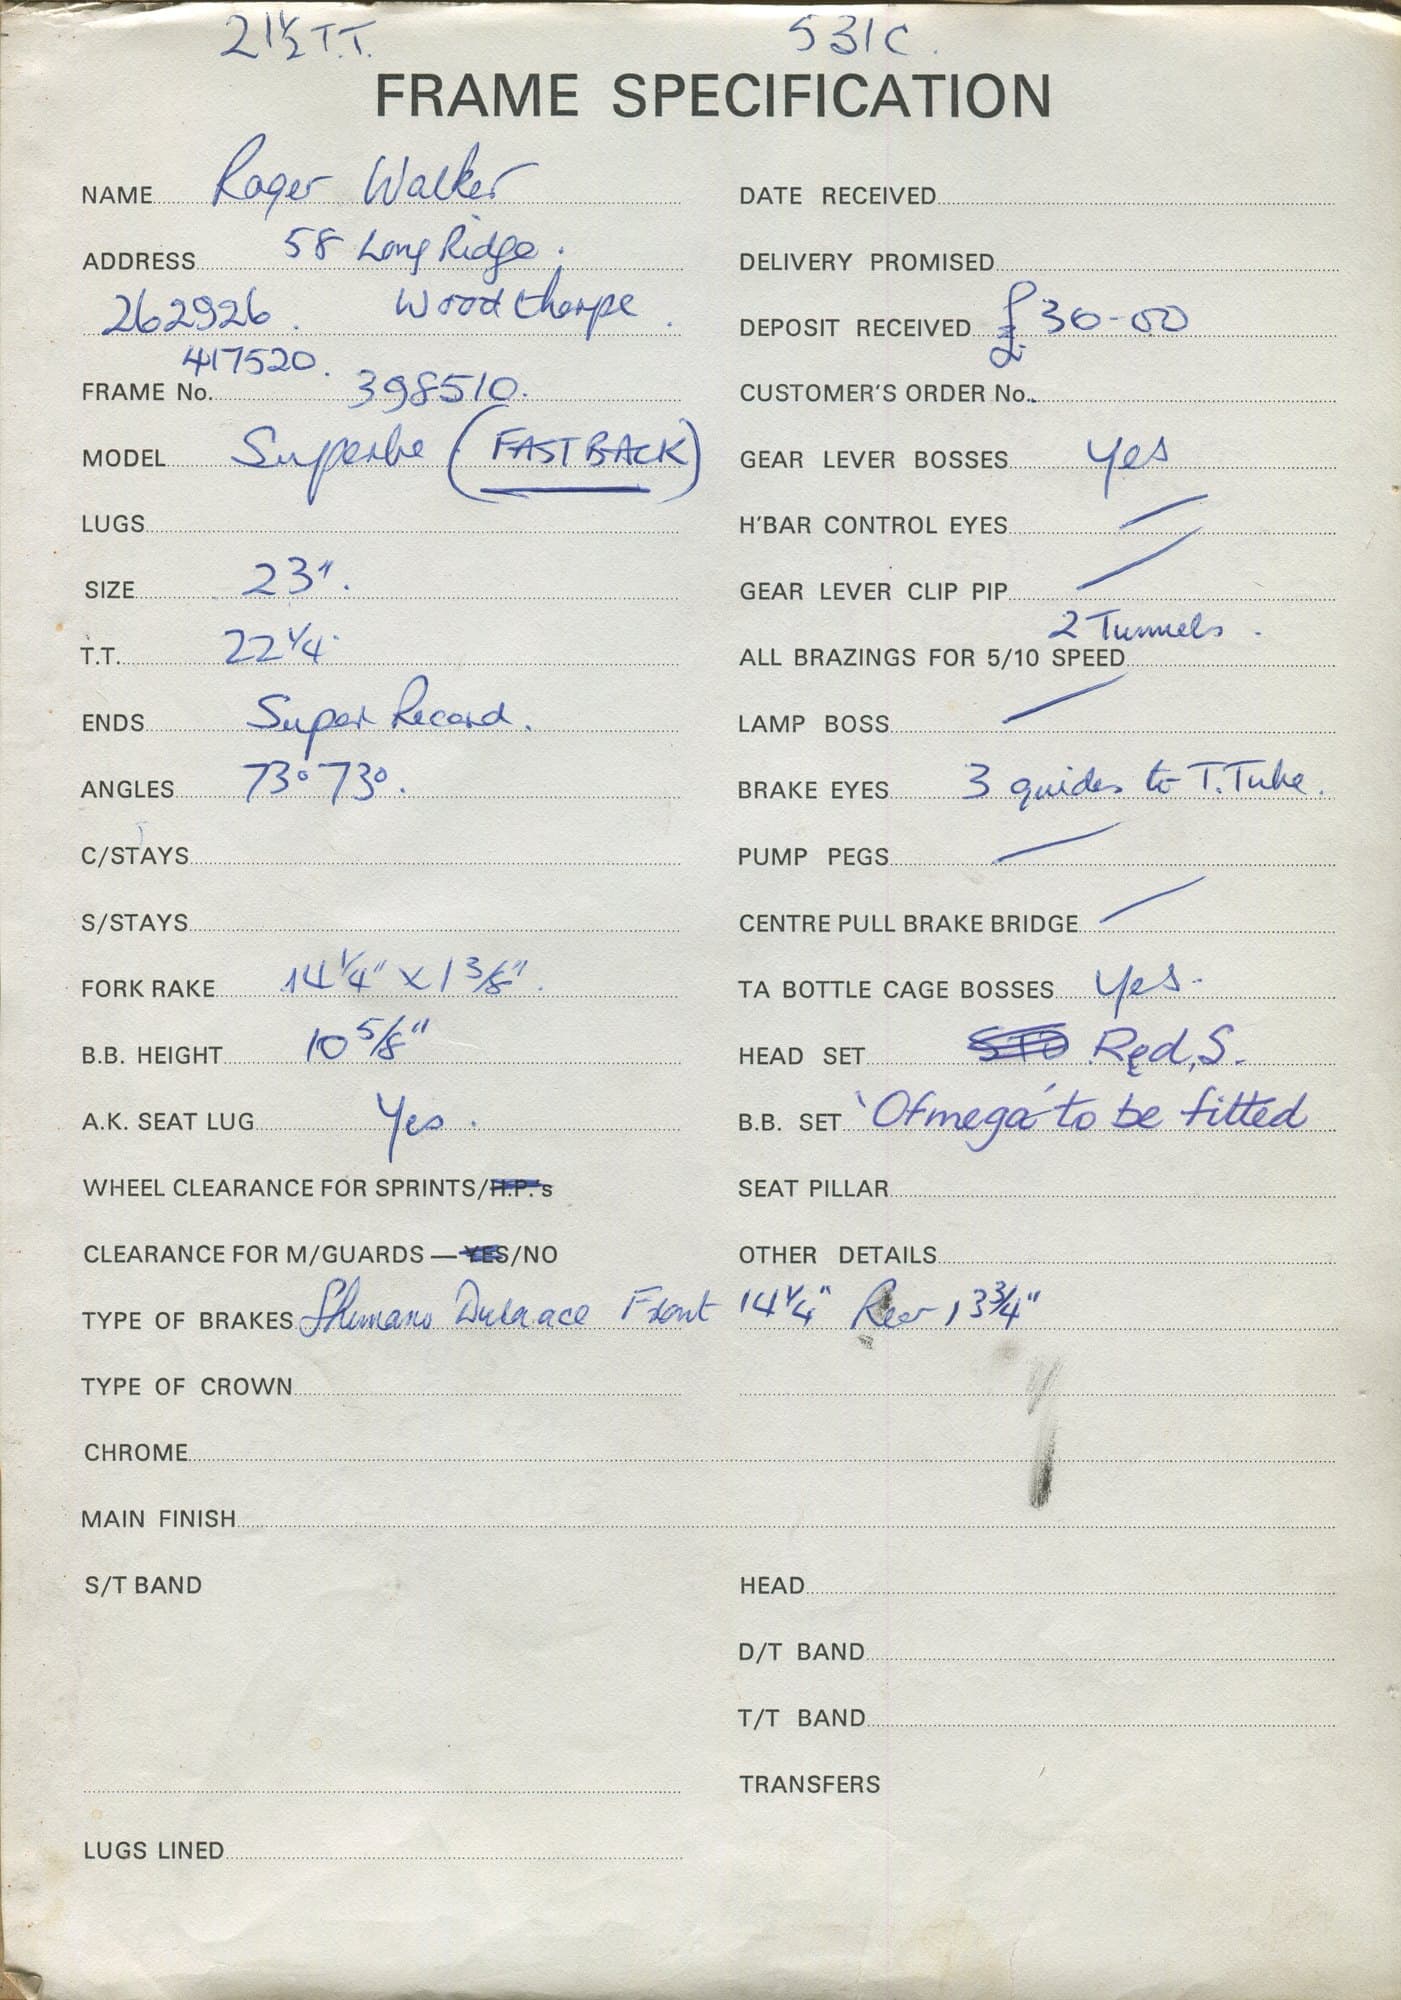 21½ T.T. 531C.
FRAME SPECIFICATION
NAME Roger Walker
ADDRESS 58 Long Ridge.
262926. Woodthorpe.
417520.
FRAME No. 398510.
MODEL Superbe (FASTBACK)
LUGS
SIZE 23".
T.T. 22¼
ENDS Super Record.
ANGLES 73° 73°.
C/STAYS
S/STAYS
FORK RAKE 14¼" x 1 3/8".
B.B. HEIGHT 10 5/8"
A.K. SEAT LUG Yes.
WHEEL CLEARANCE FOR SPRINTS/H.P.'s
CLEARANCE FOR M/GUARDS — YES/NO
DATE RECEIVED
DELIVERY PROMISED
DEPOSIT RECEIVED £30-00
CUSTOMER'S ORDER No.
GEAR LEVER BOSSES Yes
H'BAR CONTROL EYES
GEAR LEVER CLIP PIP
2 Tunnels.
ALL BRAZINGS FOR 5/10 SPEED
LAMP BOSS
BRAKE EYES 3 guides to T.Tube.
PUMP PEGS
CENTRE PULL BRAKE BRIDGE
TA BOTTLE CAGE BOSSES Yes.
HEAD SET STD Red, S.
B.B. SET 'Ofmega' to be fitted
SEAT PILLAR
OTHER DETAILS
TYPE OF BRAKES Shimano Duraace Front 14¼" Rear 13¾"
TYPE OF CROWN
CHROME
MAIN FINISH
S/T BAND
LUGS LINED
HEAD
D/T BAND
T/T BAND
TRANSFERS